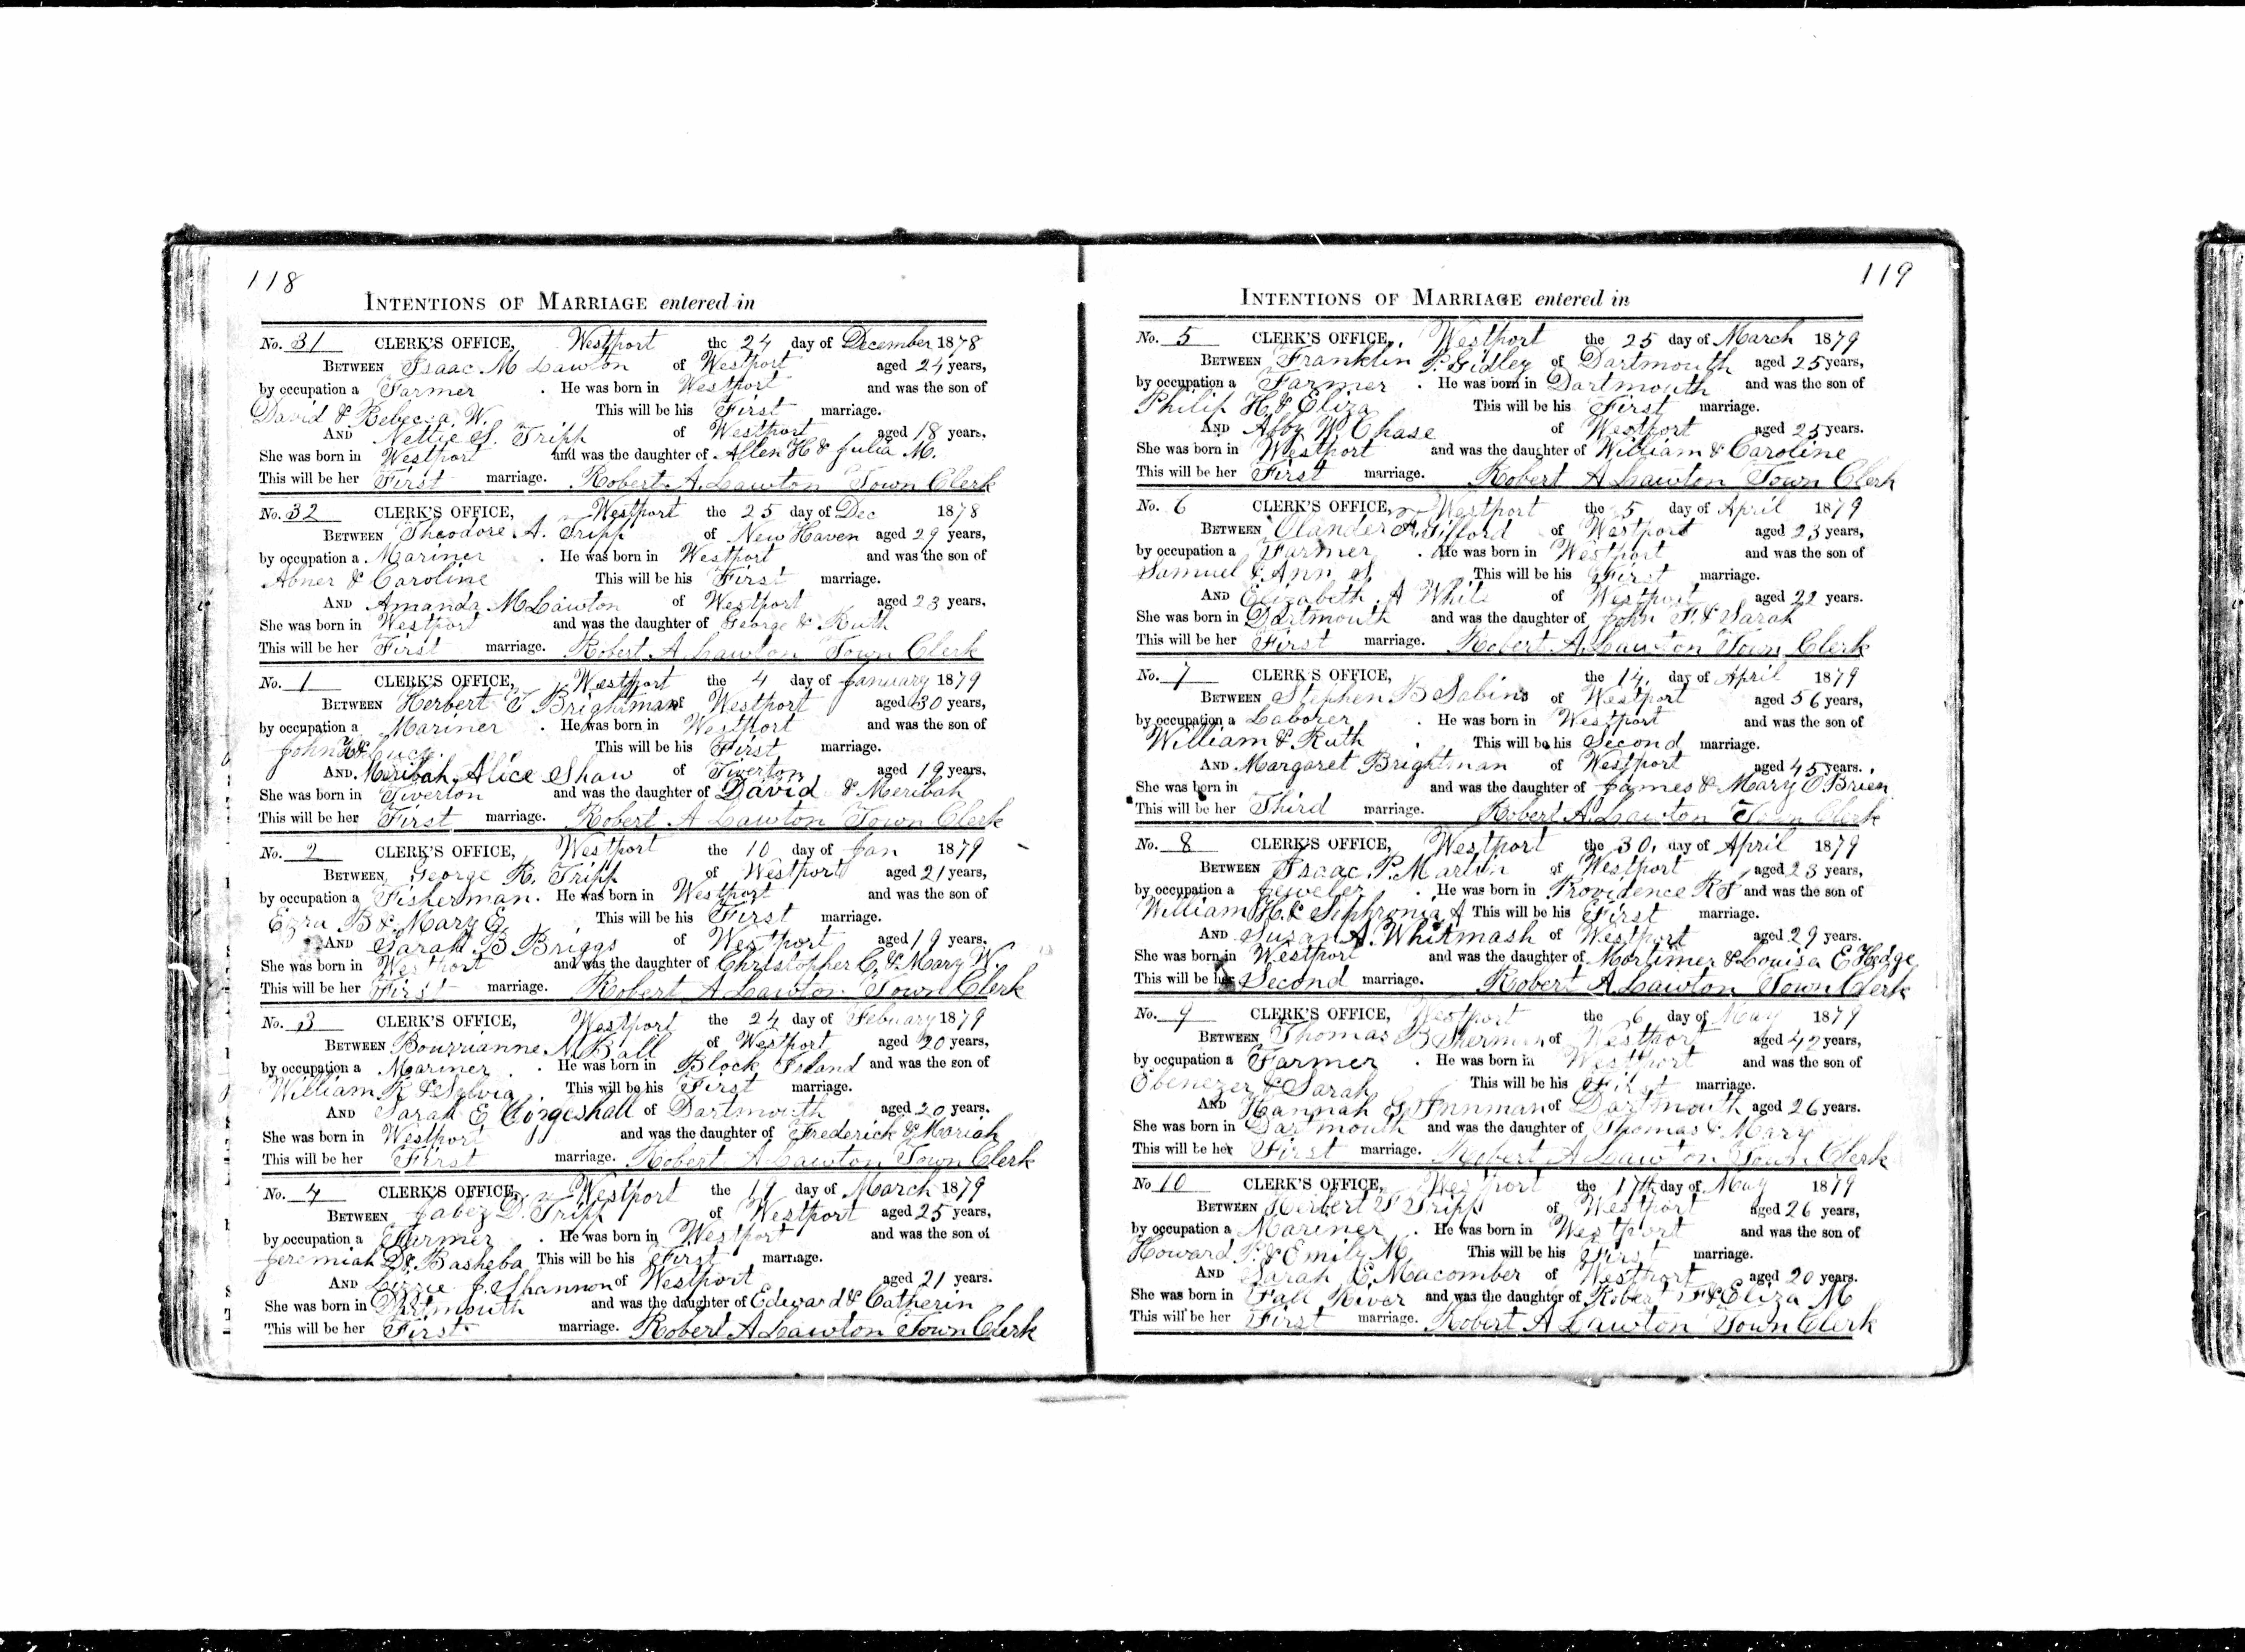 118
INTENTIONS OF MARRIAGE entered in
No. 31 CLERK'S OFFICE, Westport the 24 day of December 1878
BETWEEN Isaac M Lawton of Westport aged 24 years,
by occupation a Farmer . He was born in Westport and was the son of
David & Rebecca W. This will be his First marriage.
AND Nettie S. Tripp of Westport aged 18 years,
She was born in Westport and was the daughter of Allen H & Julia M.
This will be her First marriage. Robert A. Lawton Town Clerk
No. 32 CLERK'S OFFICE, Westport the 25 day of Dec 1878
BETWEEN Theodore A. Tripp of New Haven aged 29 years,
by occupation a Mariner . He was born in Westport and was the son of
Abner & Caroline This will be his First marriage.
AND Amanda M Lawton of Westport aged 23 years,
She was born in Westport and was the daughter of George & Ruth
This will be her First marriage. Robert A Lawton Town Clerk
No. 1 CLERK'S OFFICE, Westport the 4 day of January 1879
BETWEEN Herbert T Brightman of Westport aged 30 years,
by occupation a Mariner . He was born in Westport and was the son of
John & This will be his First marriage.
AND Meribah Alice Shaw of Tiverton aged 19 years,
She was born in Tiverton and was the daughter of David & Meribah
This will be her First marriage. Robert A Lawton Town Clerk
No. 2 CLERK'S OFFICE, Westport the 10 day of Jan 1879
BETWEEN George R. Tripp of Westport aged 21 years,
by occupation a Fisherman . He was born in Westport and was the son of
Ezra B & Mary E This will be his First marriage.
AND Sarah B Briggs of Westport aged 19 years.
She was born in Westport and was the daughter of Christopher C. & Mary W.
This will be her First marriage. Robert A Lawton Town Clerk
No. 3 CLERK'S OFFICE, Westport the 24 day of Febuary 1879
BETWEEN Bourrianne N. Ball of Westport aged 20 years,
by occupation a Mariner . He was born in Block Island and was the son of
William R & Sylvia This will be his First marriage.
AND Sarah E Coggeshall of Dartmouth aged 20 years.
She was born in Westport and was the daughter of Frederick & Mariah
This will be her First marriage. Robert A Lawton Town Clerk
No. 4 CLERK'S OFFICE, Westport the 19 day of March 1879
BETWEEN Jabez D. Tripp of Westport aged 25 years,
by occupation a Farmer . He was born in Westport and was the son of
Jeremiah D & Basheba This will be his First marriage.
AND Lizzie J. Shannon of Westport aged 21 years.
She was born in Dartmouth and was the daughter of Edward & Catherin
This will be her First marriage. Robert A Lawton Town Clerk
119
INTENTIONS OF MARRIAGE entered in
No. 5 CLERK'S OFFICE, Westport the 25 day of March 1879
BETWEEN Franklin P. Gidley of Dartmouth aged 25 years,
by occupation a Farmer . He was born in Dartmouth and was the son of
Philip H. & Eliza This will be his First marriage.
AND Abby W Chase of Westport aged 25 years.
She was born in Westport and was the daughter of William & Caroline
This will be her First marriage. Robert A Lawton Town Clerk
No. 6 CLERK'S OFFICE, Westport the 5 day of April 1879
BETWEEN Olander A. Gifford of Westport aged 23 years,
by occupation a Farmer . He was born in Westport and was the son of
Samuel & Ann S This will be his First marriage.
AND Elizabeth A White of Westport aged 22 years.
She was born in Dartmouth and was the daughter of John F. & Sarah
This will be her First marriage. Robert A. Lawton Town Clerk
No. 7 CLERK'S OFFICE, the 14, day of April 1879
BETWEEN Stephen B Sabins of Westport aged 56 years,
by occupation a Laborer . He was born in Westport and was the son of
William & Ruth This will be his Second marriage.
AND Margaret Brightman of Westport aged 45 years.
She was born in and was the daughter of James & Mary O'Brien
This will be her Third marriage. Robert A. Lawton Town Clerk
No. 8 CLERK'S OFFICE, Westport the 30, day of April 1879
BETWEEN Isaac P. Martin of Westport aged 23 years,
by occupation a Jeweler . He was born in Providence RI and was the son of
William H. & Sephronia A This will be his First marriage.
AND Susan A. Whitmash of Westport aged 29 years.
She was born in Westport and was the daughter of Mortimer & Louisa E Hedge
This will be her Second marriage. Robert A. Lawton Town Clerk
No. 9 CLERK'S OFFICE, Westport the 6 day of May 1879
BETWEEN Thomas B Sherman of Westport aged 42 years,
by occupation a Farmer . He was born in Westport and was the son of
Ebenezer & Sarah This will be his First marriage.
AND Hannah of Dartmouth aged 26 years.
She was born in Dartmouth and was the daughter of Thomas & Mary
This will be her First marriage. Robert A Lawton Town Clerk
No 10 CLERK'S OFFICE, Westport the 17th day of May 1879
BETWEEN Herbert F Tripp of Westport aged 26 years,
by occupation a Mariner . He was born in Westport and was the son of
Howard P. & Emily M. This will be his First marriage.
AND Sarah E. Macomber of Westport aged 20 years.
She was born in Fall River and was the daughter of Robert F & Eliza M
This will be her First marriage. Robert A Lawton Town Clerk